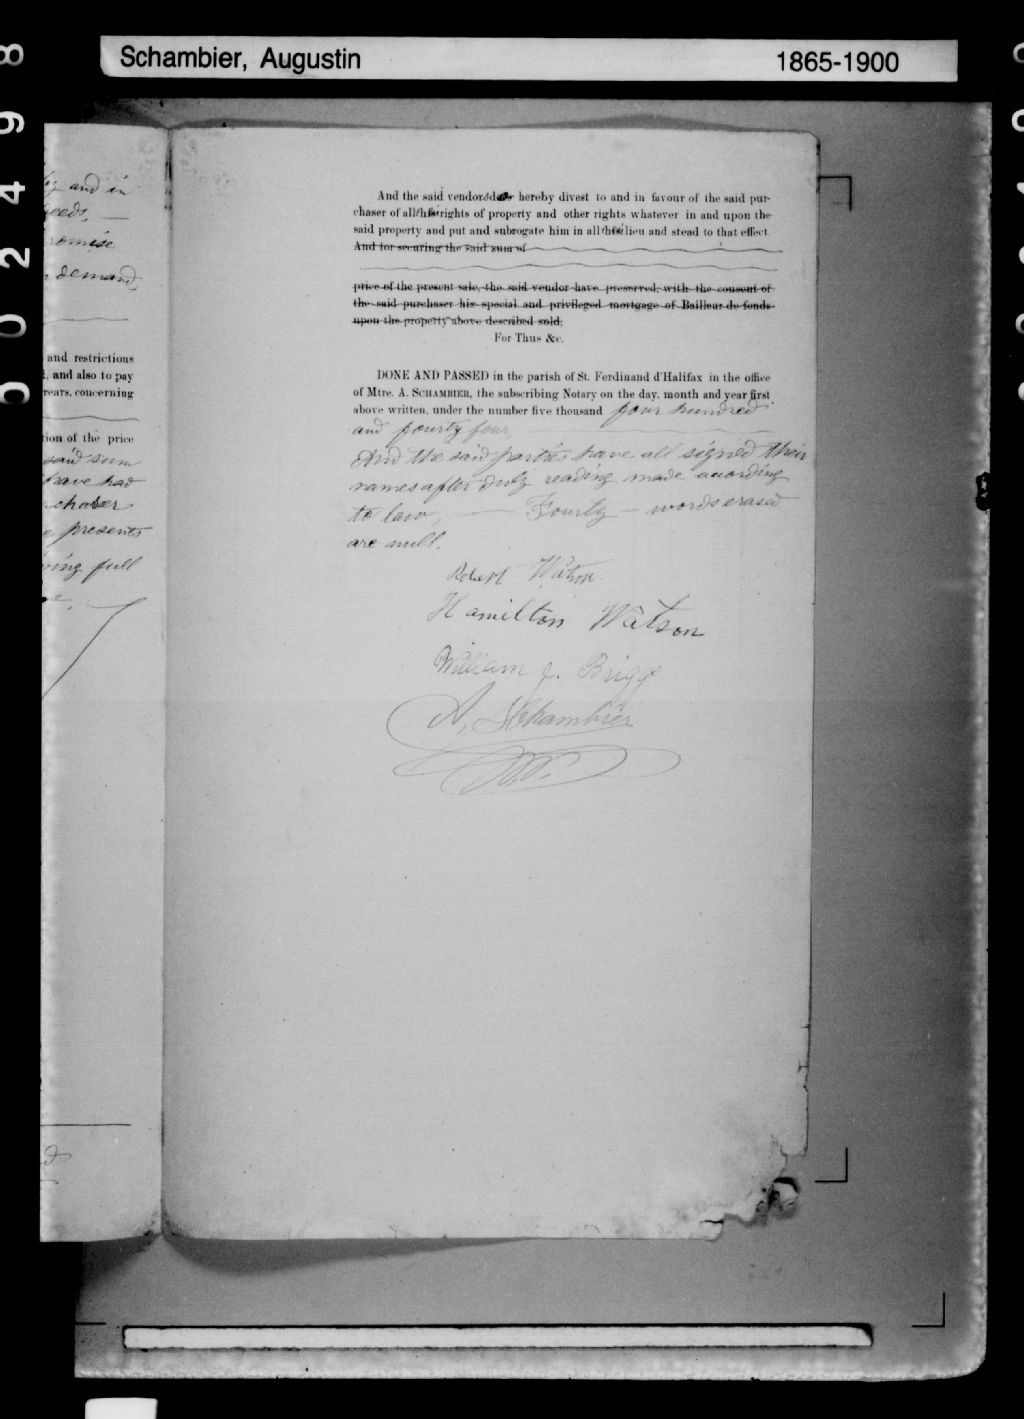 Schambier, Augustin 1865-1900
and in
eeds,
romise
demand,
and restrictions
, and also to pay
rears, concerning
tion of the price
said sum
have had
chaser
presents
ving full
And the said vendors do hereby divest to and in favour of the said pur-
chaser of all their rights of property and other rights whatever in and upon the
said property and put and subrogate him in all their lieu and stead to that effect.
And for securing the said sum of
price of the present sale, the said vendor have preserved, with the consent of
the said purchaser his special and privileged mortgage of Bailleur de fonds
upon the property above described sold.
For Thus &c.
DONE AND PASSED in the parish of St. Ferdinand d'Halifax in the office
of Mtre. A. SCHAMBIER, the subscribing Notary on the day, month and year first
above written, under the number five thousand four hundred
and fourty four,
And the said parties have all signed their
names after duly reading made acording
to law, — Fourty — words erased
are null.
Robert Watson
Hamilton Watson
William J. Briggs
A. Schambier
N.P.